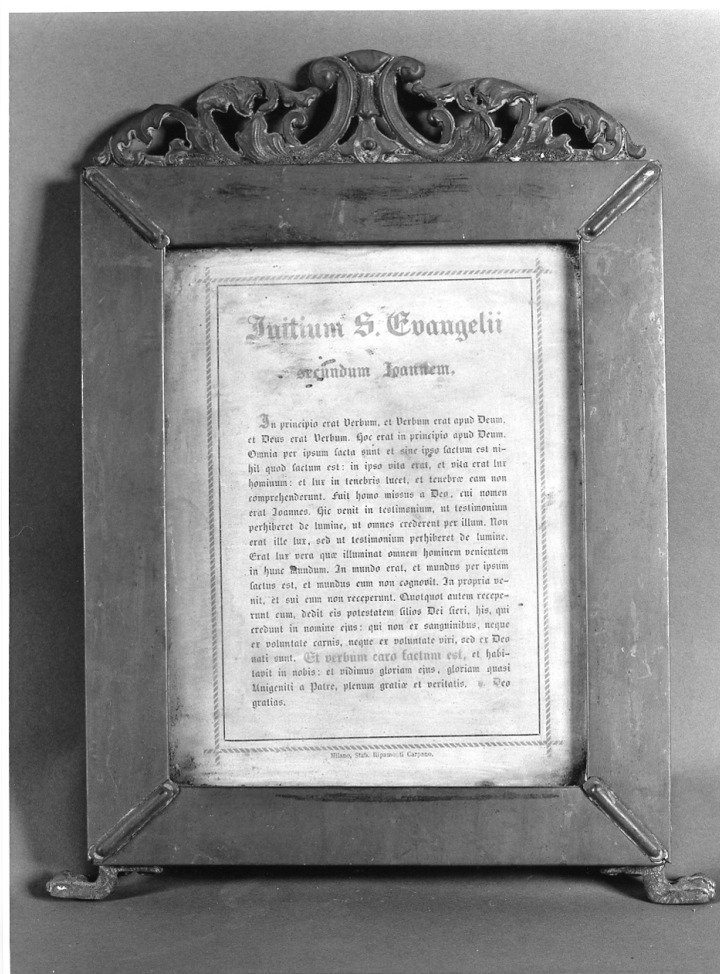 Initium S. Evangelii
secundum Ioannem.
In principio erat Verbum, et Verbum erat apud Deum,
et Deus erat Verbum. Hoc erat in principio apud Deum.
Omnia per ipsum facta sunt et sine ipso factum est ni-
hil quod factum est: in ipso vita erat, et vita erat lux
hominum: et lux in tenebris lucet, et tenebræ eam non
comprehenderunt. Fuit homo missus a Deo, cui nomen
erat Joannes. Hic venit in testimonium, ut testimonium
perhiberet de lumine, ut omnes crederent per illum. Non
erat ille lux, sed ut testimonium perhiberet de lumine.
Erat lux vera quæ illuminat omnem hominem venientem
in hunc mundum. In mundo erat, et mundus per ipsum
factus est, et mundus eum non cognovit. In propria ve-
nit, et sui eum non receperunt. Quotquot autem recepe-
runt eum, dedit eis potestatem filios Dei fieri, his, qui
credunt in nomine ejus: qui non ex sanguinibus, neque
ex voluntate carnis, neque ex voluntate viri, sed ex Deo
nati sunt. Et verbum caro factum est, et habi-
tavit in nobis: et vidimus gloriam ejus, gloriam quasi
Unigeniti a Patre, plenum gratiæ et veritatis. Deo
gratias.
Milano, Stab. Ripamonti Carpano.